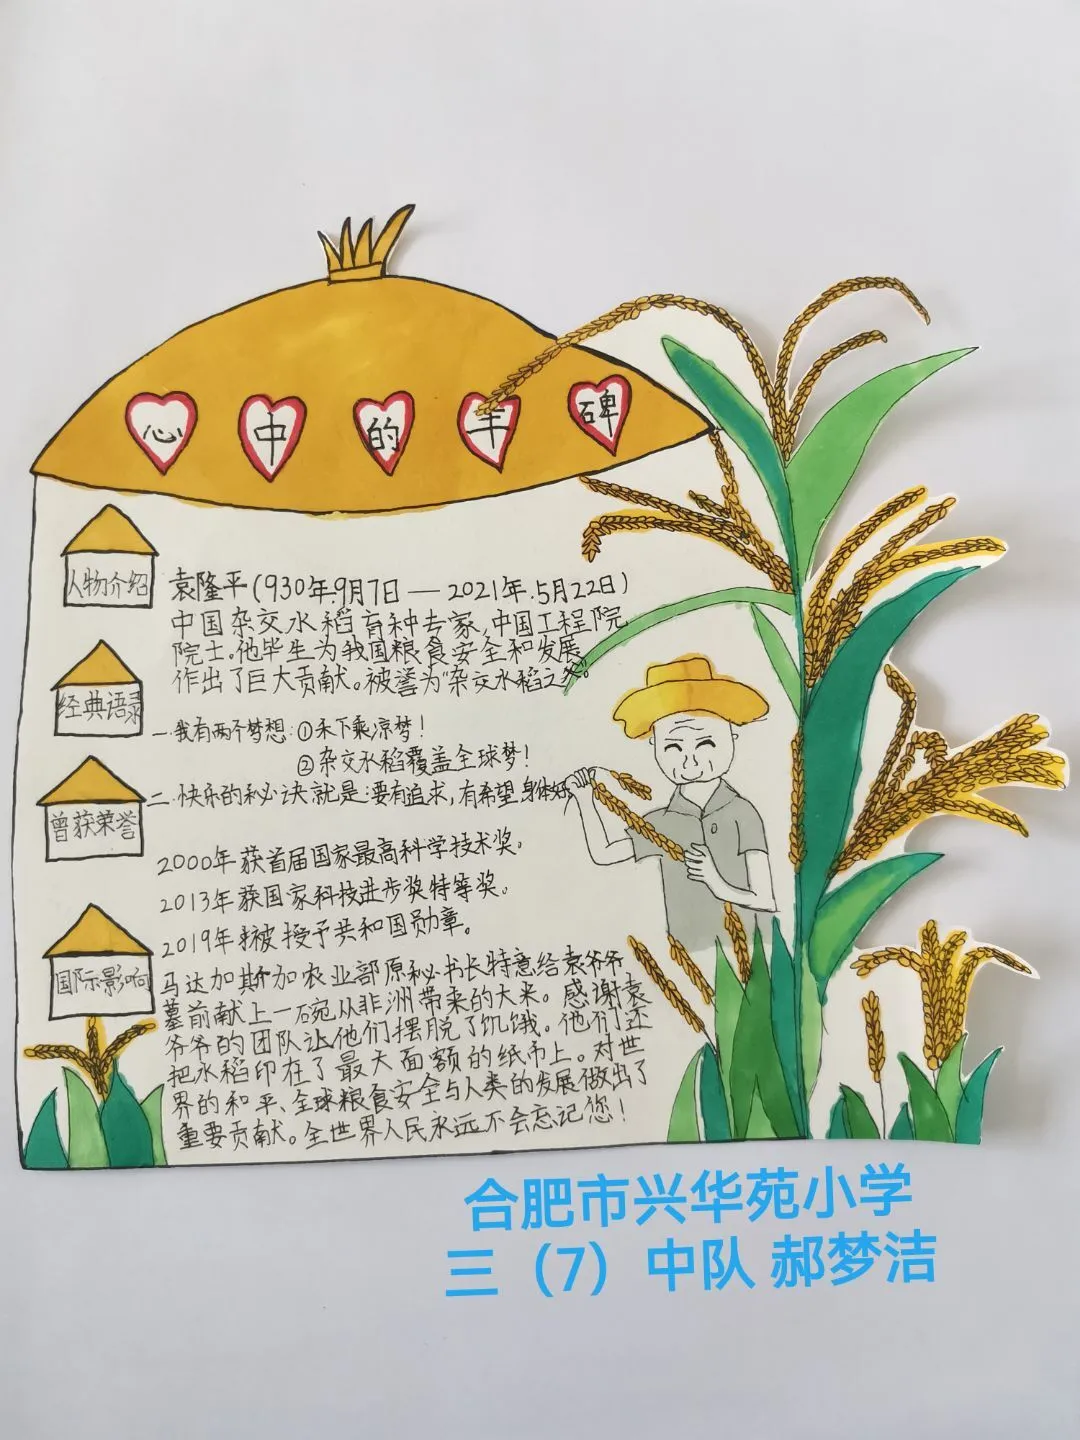 心中的丰碑
人物介绍
袁隆平(930年.9月7日—2021年.5月22日)
中国杂交水稻育种专家,中国工程院
院士。他毕生为我国粮食安全和发展
作出了巨大贡献。被誉为"杂交水稻之父"。
经典语录
一.我有两个梦想:①禾下乘凉梦!
②杂交水稻覆盖全球梦!
二.快乐的秘诀就是:要有追求,有希望,身体好
曾获荣誉
2000年获首届国家最高科学技术奖。
2013年获国家科技进步奖特等奖。
2019年被授予共和国勋章。
国际影响
马达加斯加农业部原秘书长特意给袁爷爷
墓前献上一碗从非洲带来的大米。感谢袁
爷爷的团队让他们摆脱了饥饿。他们还
把水稻印在了最大面额的纸币上。对世
界的和平、全球粮食安全与人类的发展做出了
重要贡献。全世界人民永远不会忘记您!
合肥市兴华苑小学
三（7）中队 郝梦洁